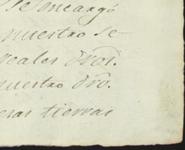 se encargó
nuestro se
reales Orđ.
nuestro
esas tierras